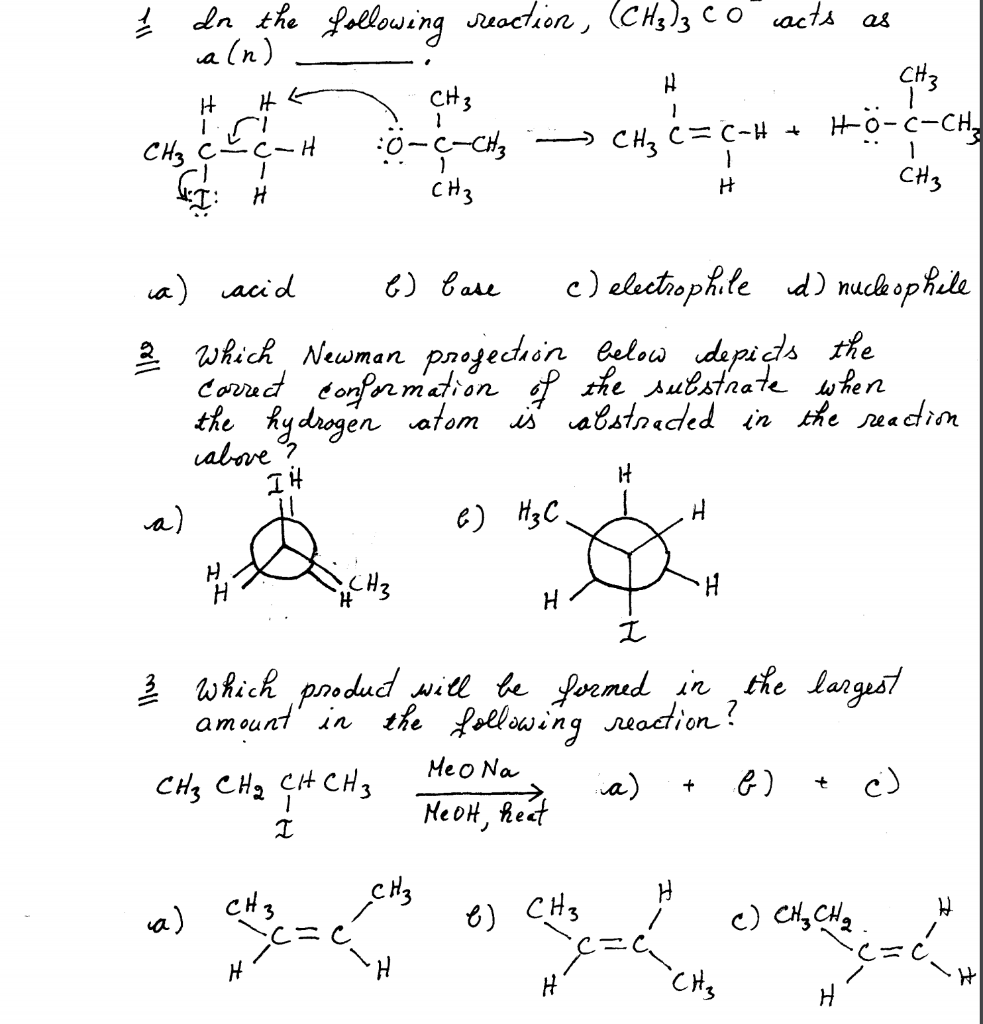 1 In the following reaction, (CH3)3 CO⁻ acts as
a(n) ________.
H H CH3 H CH3
CH3 C — C — H :Ö — C — CH3 → CH3 C = C — H + H — Ö — C — CH3
:I: H CH3 H CH3
a) acid b) base c) electrophile d) nucleophile
2 Which Newman projection below depicts the
correct conformation of the substrate when
the hydrogen atom is abstracted in the reaction
above?
I H H
a) b) H3C H
H H CH3 H H H
I
3 Which product will be formed in the largest
amount in the following reaction?
CH3 CH2 CH CH3 MeONa a) + b) + c)
I MeOH, heat
a) CH3 CH3 b) CH3 H c) CH3CH2 H
C = C C = C C = C
H H H CH3 H H